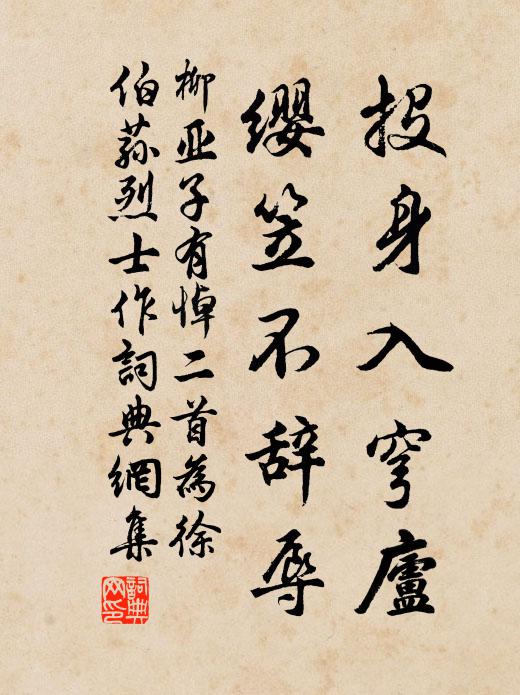 投身入穹廬
纓笠不辞辱
柳亚子有悼二首為徐
伯荪烈士作詞典網集
詞典网印